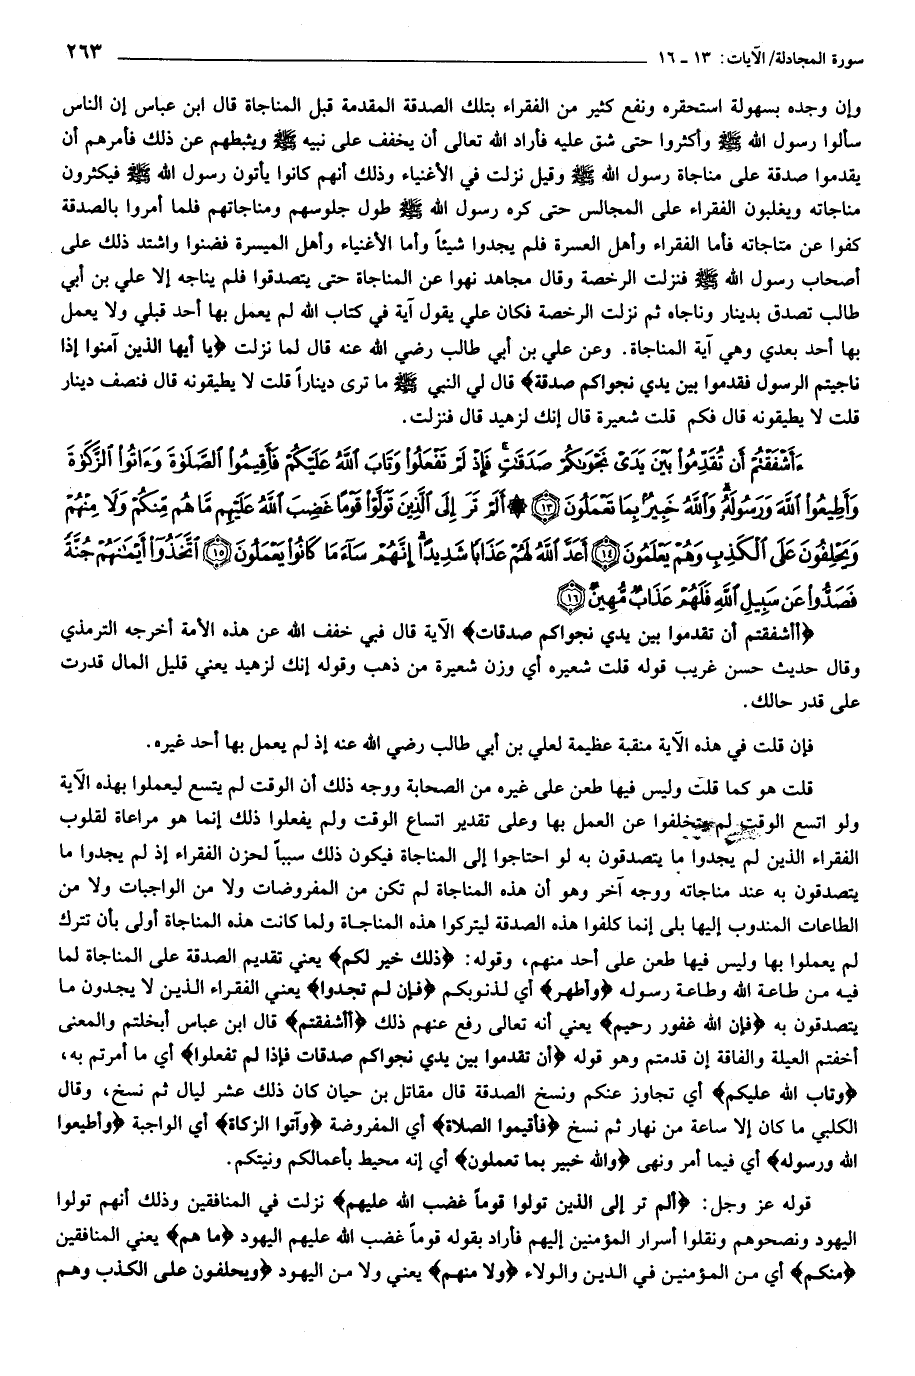 سورة المجادلة/ الآيات: ١٣ - ١٦ ٢٦٣
وإن وجده بسهولة استحقره ونفع كثير من الفقراء بتلك الصدقة المقدمة قبل المناجاة قال ابن عباس إن الناس
سألوا رسول الله ﷺ وأكثروا حتى شق عليه فأراد الله تعالى أن يخفف على نبيه ﷺ ويثبطهم عن ذلك فأمرهم أن
يقدموا صدقة على مناجاة رسول الله ﷺ وقيل نزلت في الأغنياء وذلك أنهم كانوا يأتون رسول الله ﷺ فيكثرون
مناجاته ويغلبون الفقراء على المجالس حتى كره رسول الله ﷺ طول جلوسهم ومناجاتهم فلما أمروا بالصدقة
كفوا عن متاجاته فأما الفقراء وأهل العسرة فلم يجدوا شيئاً وأما الأغنياء وأهل الميسرة فضنوا واشتد ذلك على
أصحاب رسول الله ﷺ فنزلت الرخصة وقال مجاهد نهوا عن المناجاة حتى يتصدقوا فلم يناجه إلا علي بن أبي
طالب تصدق بدينار وناجاه ثم نزلت الرخصة فكان علي يقول آية في كتاب الله لم يعمل بها أحد قبلي ولا يعمل
بها أحد بعدي وهي آية المناجاة. وعن علي بن أبي طالب رضي الله عنه قال لما نزلت ﴿يا أيها الذين آمنوا إذا
ناجيتم الرسول فقدموا بين يدي نجواكم صدقة﴾ قال لي النبي ﷺ ما ترى ديناراً قلت لا يطيقونه قال فنصف دينار
قلت لا يطيقونه قال فكم قلت شعيرة قال إنك لزهيد قال فنزلت.
ءَأَشْفَقْتُمْ أَن تُقَدِّمُوا۟ بَيْنَ يَدَىْ نَجْوَىٰكُمْ صَدَقَٰتٍ ۚ فَإِذْ لَمْ تَفْعَلُوا۟ وَتَابَ ٱللَّهُ عَلَيْكُمْ فَأَقِيمُوا۟ ٱلصَّلَوٰةَ وَءَاتُوا۟ ٱلزَّكَوٰةَ
وَأَطِيعُوا۟ ٱللَّهَ وَرَسُولَهُۥ ۚ وَٱللَّهُ خَبِيرٌۢ بِمَا تَعْمَلُونَ ﴿١٣﴾ ۞ أَلَمْ تَرَ إِلَى ٱلَّذِينَ تَوَلَّوْا۟ قَوْمًا غَضِبَ ٱللَّهُ عَلَيْهِم مَّا هُم مِّنكُمْ وَلَا مِنْهُمْ
وَيَحْلِفُونَ عَلَى ٱلْكَذِبِ وَهُمْ يَعْلَمُونَ ﴿١٤﴾ أَعَدَّ ٱللَّهُ لَهُمْ عَذَابًا شَدِيدًا ۖ إِنَّهُمْ سَآءَ مَا كَانُوا۟ يَعْمَلُونَ ﴿١٥﴾ ٱتَّخَذُوٓا۟ أَيْمَٰنَهُمْ جُنَّةً
فَصَدُّوا۟ عَن سَبِيلِ ٱللَّهِ فَلَهُمْ عَذَابٌ مُّهِينٌ ﴿١٦﴾
﴿أأشفقتم أن تقدموا بين يدي نجواكم صدقات﴾ الآية قال فبي خفف الله عن هذه الأمة أخرجه الترمذي
وقال حديث حسن غريب قوله قلت شعيره أي وزن شعيرة من ذهب وقوله إنك لزهيد يعني قليل المال قدرت
على قدر حالك.
فإن قلت في هذه الآية منقبة عظيمة لعلي بن أبي طالب رضي الله عنه إذ لم يعمل بها أحد غيره.
قلت هو كما قلت وليس فيها طعن على غيره من الصحابة ووجه ذلك أن الوقت لم يتسع ليعملوا بهذه الآية
ولو اتسع الوقت لم يتخلفوا عن العمل بها وعلى تقدير اتساع الوقت ولم يفعلوا ذلك إنما هو مراعاة لقلوب
الفقراء الذين لم يجدوا ما يتصدقون به لو احتاجوا إلى المناجاة فيكون ذلك سبباً لحزن الفقراء إذ لم يجدوا ما
يتصدقون به عند مناجاته ووجه آخر وهو أن هذه المناجاة لم تكن من المفروضات ولا من الواجبات ولا من
الطاعات المندوب إليها بلى إنما كلفوا هذه الصدقة ليتركوا هذه المناجاة ولما كانت هذه المناجاة أولى بأن تترك
لم يعملوا بها وليس فيها طعن على أحد منهم، وقوله: ﴿ذلك خير لكم﴾ يعني تقديم الصدقة على المناجاة لما
فيه من طاعة الله وطاعة رسوله ﴿وأطهر﴾ أي لذنوبكم ﴿فإن لم تجدوا﴾ يعني الفقراء الذين لا يجدون ما
يتصدقون به ﴿فإن الله غفور رحيم﴾ يعني أنه تعالى رفع عنهم ذلك ﴿أأشفقتم﴾ قال ابن عباس أبخلتم والمعنى
أخفتم العيلة والفاقة إن قدمتم وهو قوله ﴿أن تقدموا بين يدي نجواكم صدقات فإذا لم تفعلوا﴾ أي ما أمرتم به،
﴿وتاب الله عليكم﴾ أي تجاوز عنكم ونسخ الصدقة قال مقاتل بن حيان كان ذلك عشر ليال ثم نسخ، وقال
الكلبي ما كان إلا ساعة من نهار ثم نسخ ﴿فأقيموا الصلاة﴾ أي المفروضة ﴿وآتوا الزكاة﴾ أي الواجبة ﴿وأطيعوا
الله ورسوله﴾ أي فيما أمر ونهى ﴿والله خبير بما تعملون﴾ أي إنه محيط بأعمالكم ونيتكم.
قوله عز وجل: ﴿ألم تر إلى الذين تولوا قوماً غضب الله عليهم﴾ نزلت في المنافقين وذلك أنهم تولوا
اليهود ونصحوهم ونقلوا أسرار المؤمنين إليهم فأراد بقوله قوماً غضب الله عليهم اليهود ﴿ما هم﴾ يعني المنافقين
﴿منكم﴾ أي من المؤمنين في الدين والولاء ﴿ولا منهم﴾ يعني ولا من اليهود ﴿ويحلفون على الكذب وهم